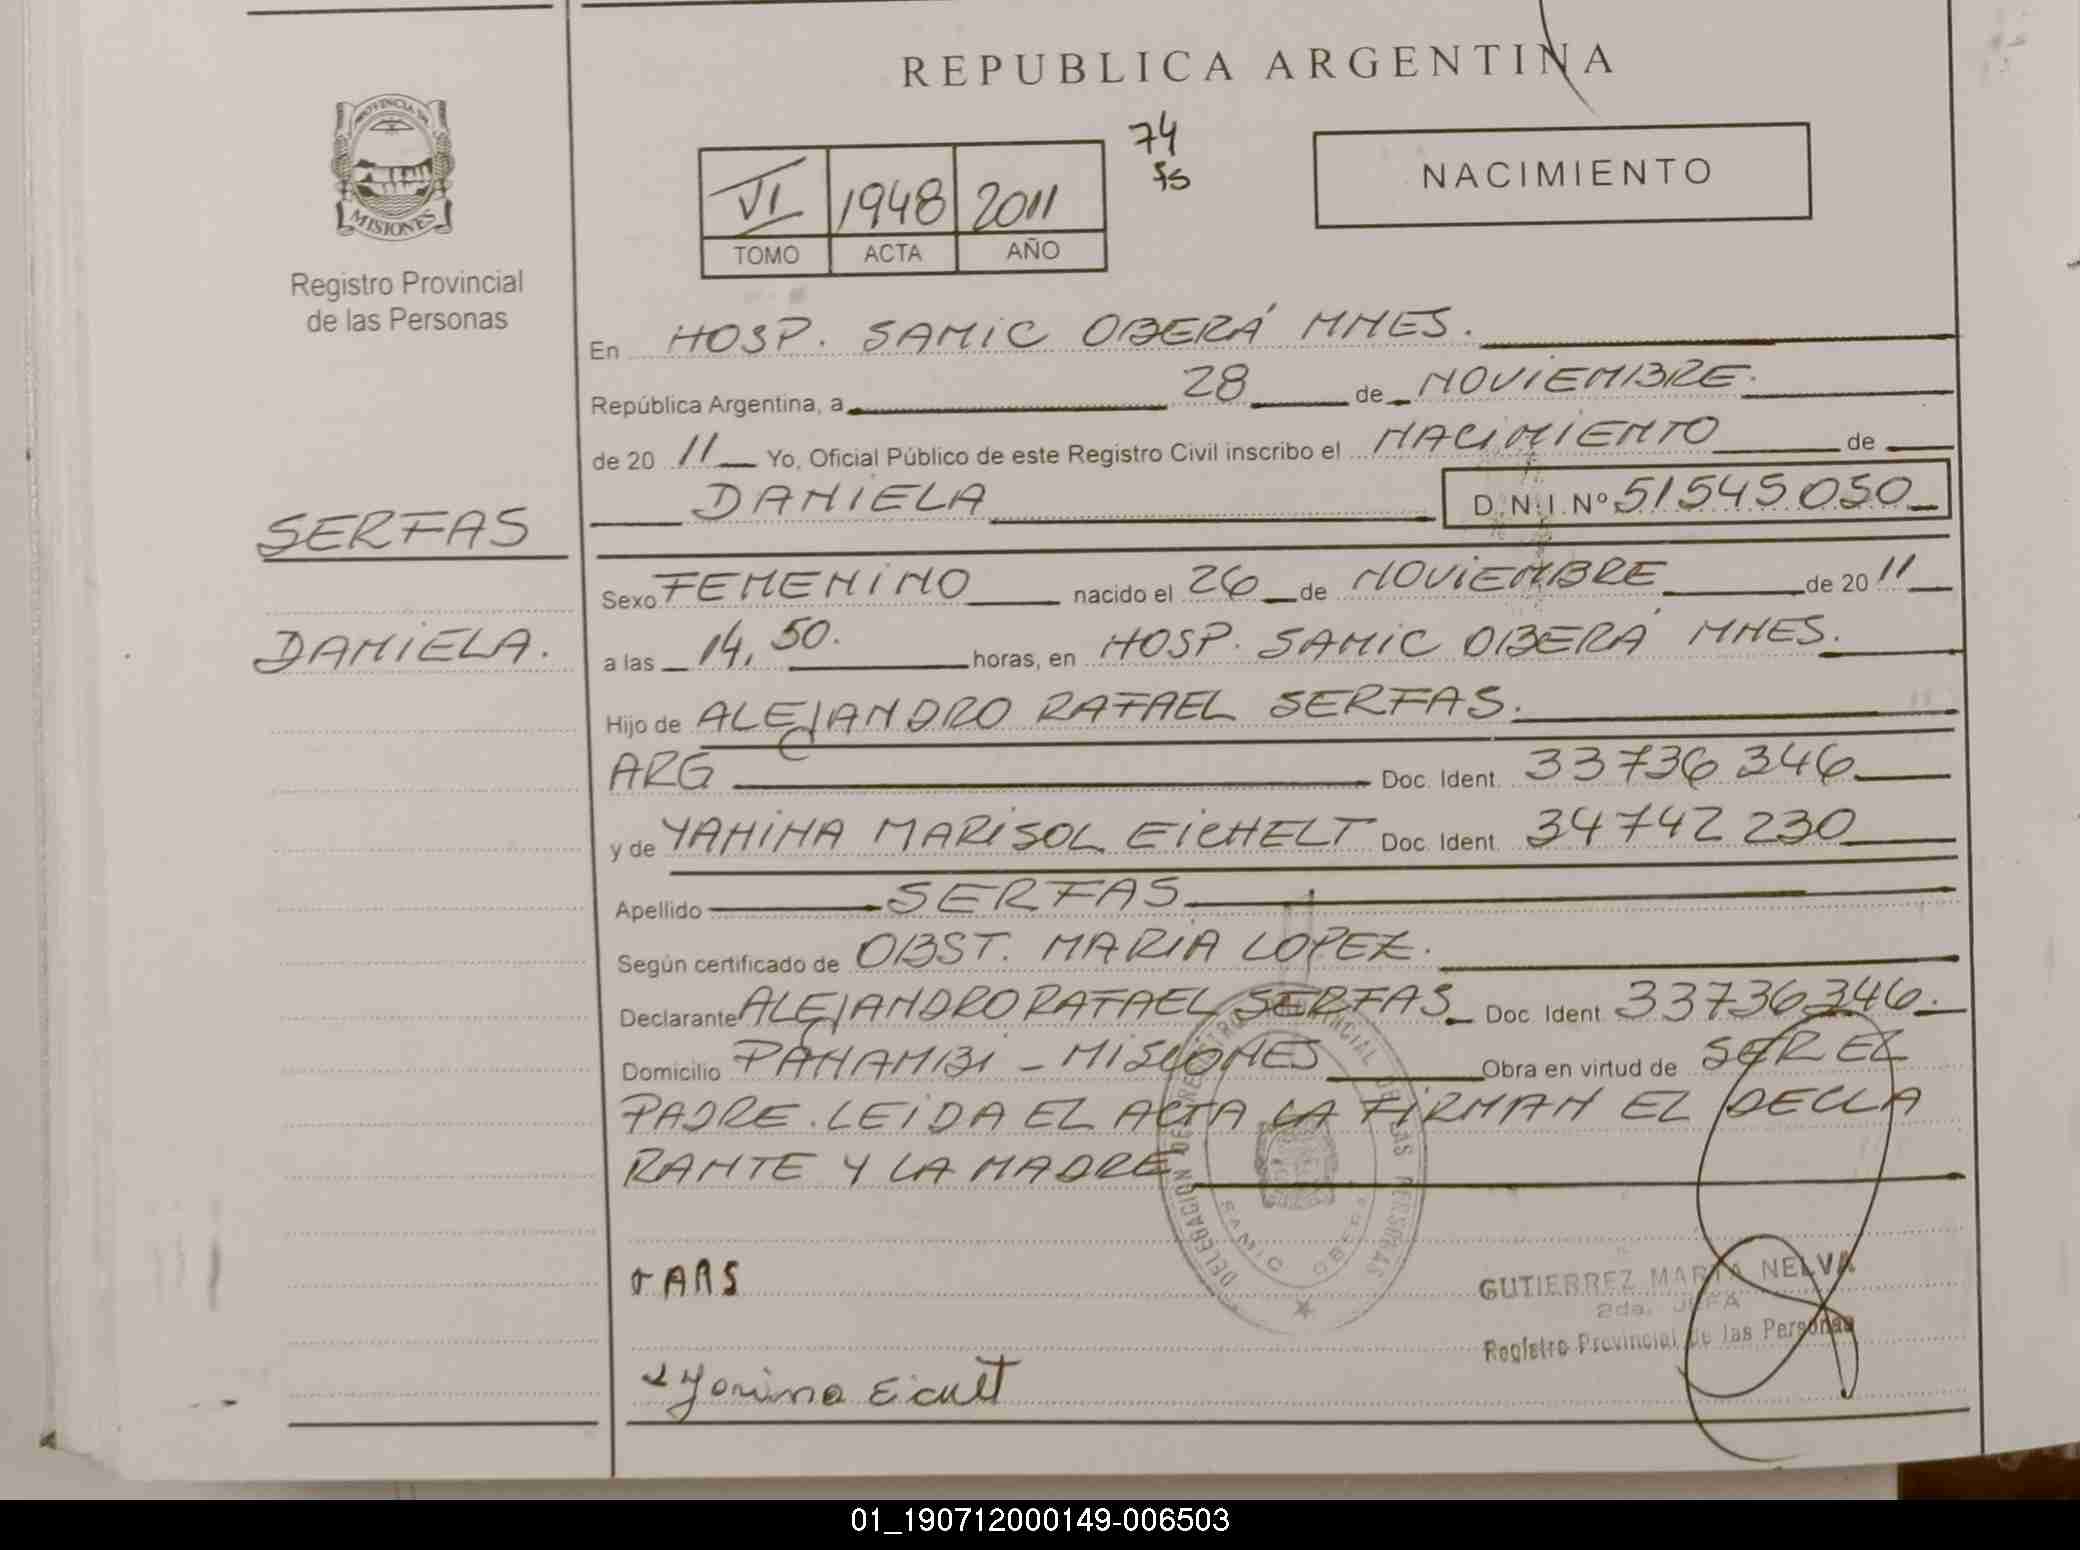 REPUBLICA ARGENTINA
PROVINCIA DE
MISIONES
Registro Provincial
de las Personas
74
fs
VI 1948 2011
TOMO ACTA AÑO
NACIMIENTO
En HOSP. SAMIC OBERÁ MNES.
República Argentina, a 28 de NOVIEMBRE.
de 20 11 Yo, Oficial Público de este Registro Civil inscribo el NACIMIENTO de
DANIELA D.N.I. Nº 51545050
SERFAS
DANIELA.
Sexo FEMENINO nacido el 26 de NOVIEMBRE de 20 11
a las 14,50. horas, en HOSP. SAMIC OBERÁ MNES.
Hijo de ALEJANDRO RAFAEL SERFAS.
ARG Doc. Ident. 33736346
y de YANINA MARISOL EICHELT Doc. Ident. 34742230
Apellido SERFAS
Según certificado de OBST. MARIA LOPEZ.
Declarante ALEJANDRO RAFAEL SERFAS Doc. Ident 33736346.
Domicilio PANAMBI - MISIONES Obra en virtud de SER EL
PADRE. LEIDA EL ACTA LA FIRMAN EL DECLA
RANTE Y LA MADRE
DELEGACION DEL REGISTRO PROVINCIAL DE LAS PERSONAS
SAMIC OBERA
ARS
GUTIERREZ MARTA NELVA
2da. JEFA
Registro Provincial de las Personas
Yanina Eicult
01_190712000149-006503